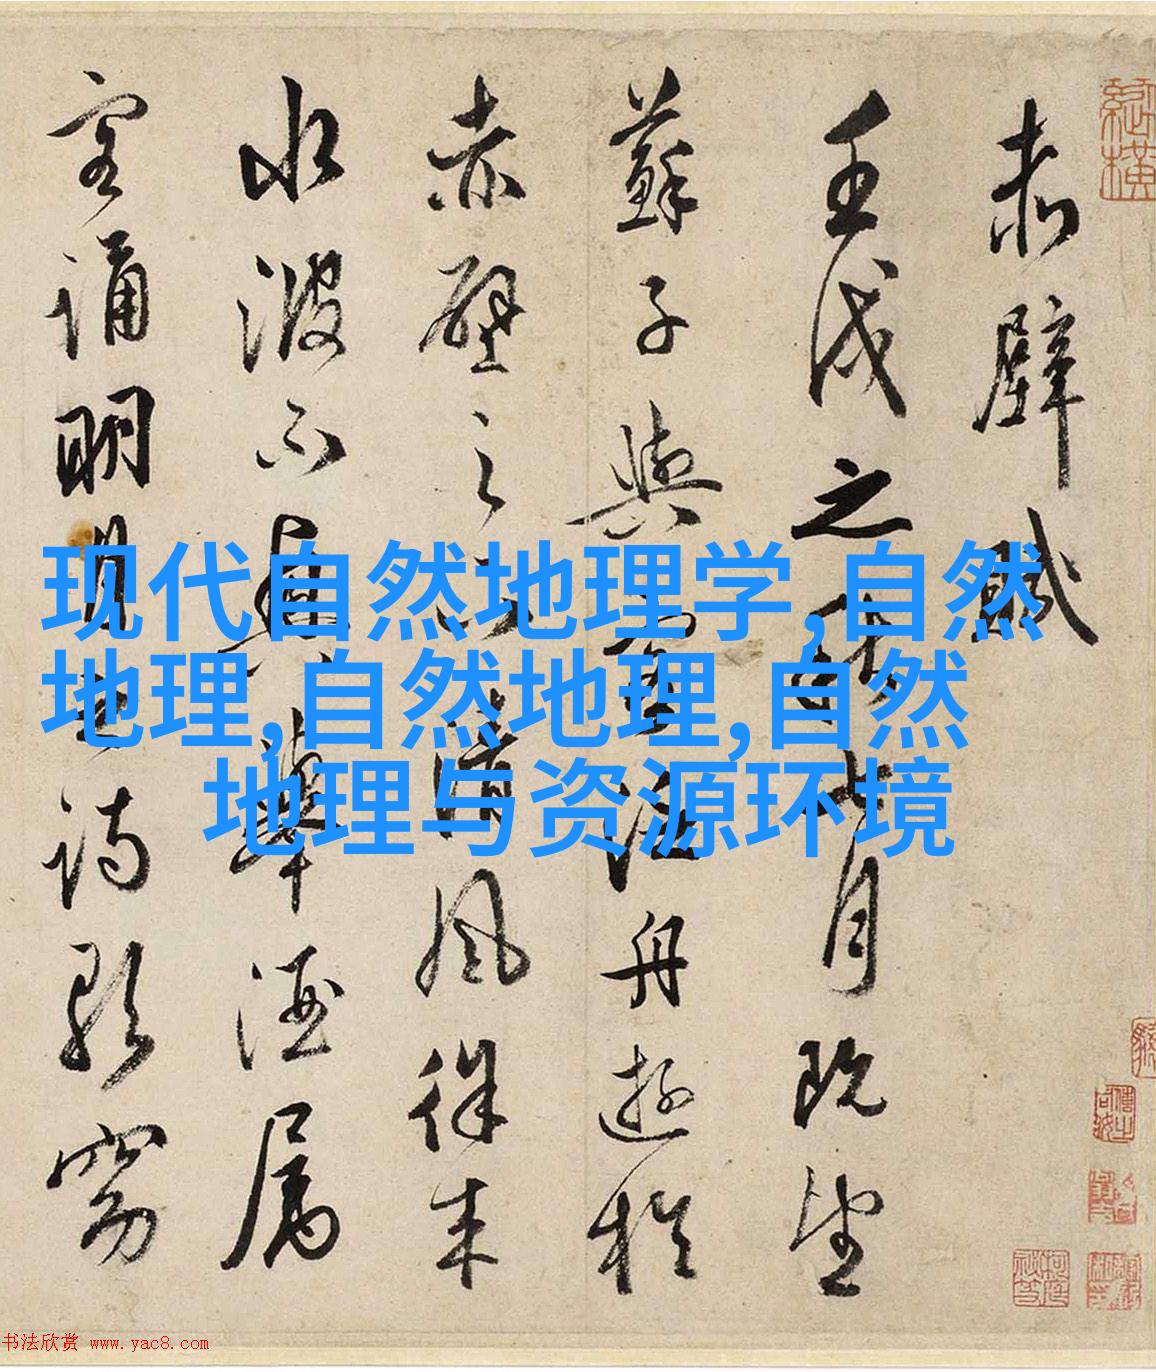 赤壁賦
壬戌之秋七月既望
蘇子與客泛舟遊於
赤壁之下清風徐来
水波不興舉酒属
客誦明月之詩歌窈
现代自然地理学,自然
地理,自然地理,自然
地理与资源环境
书法欣赏 www.yac8.com